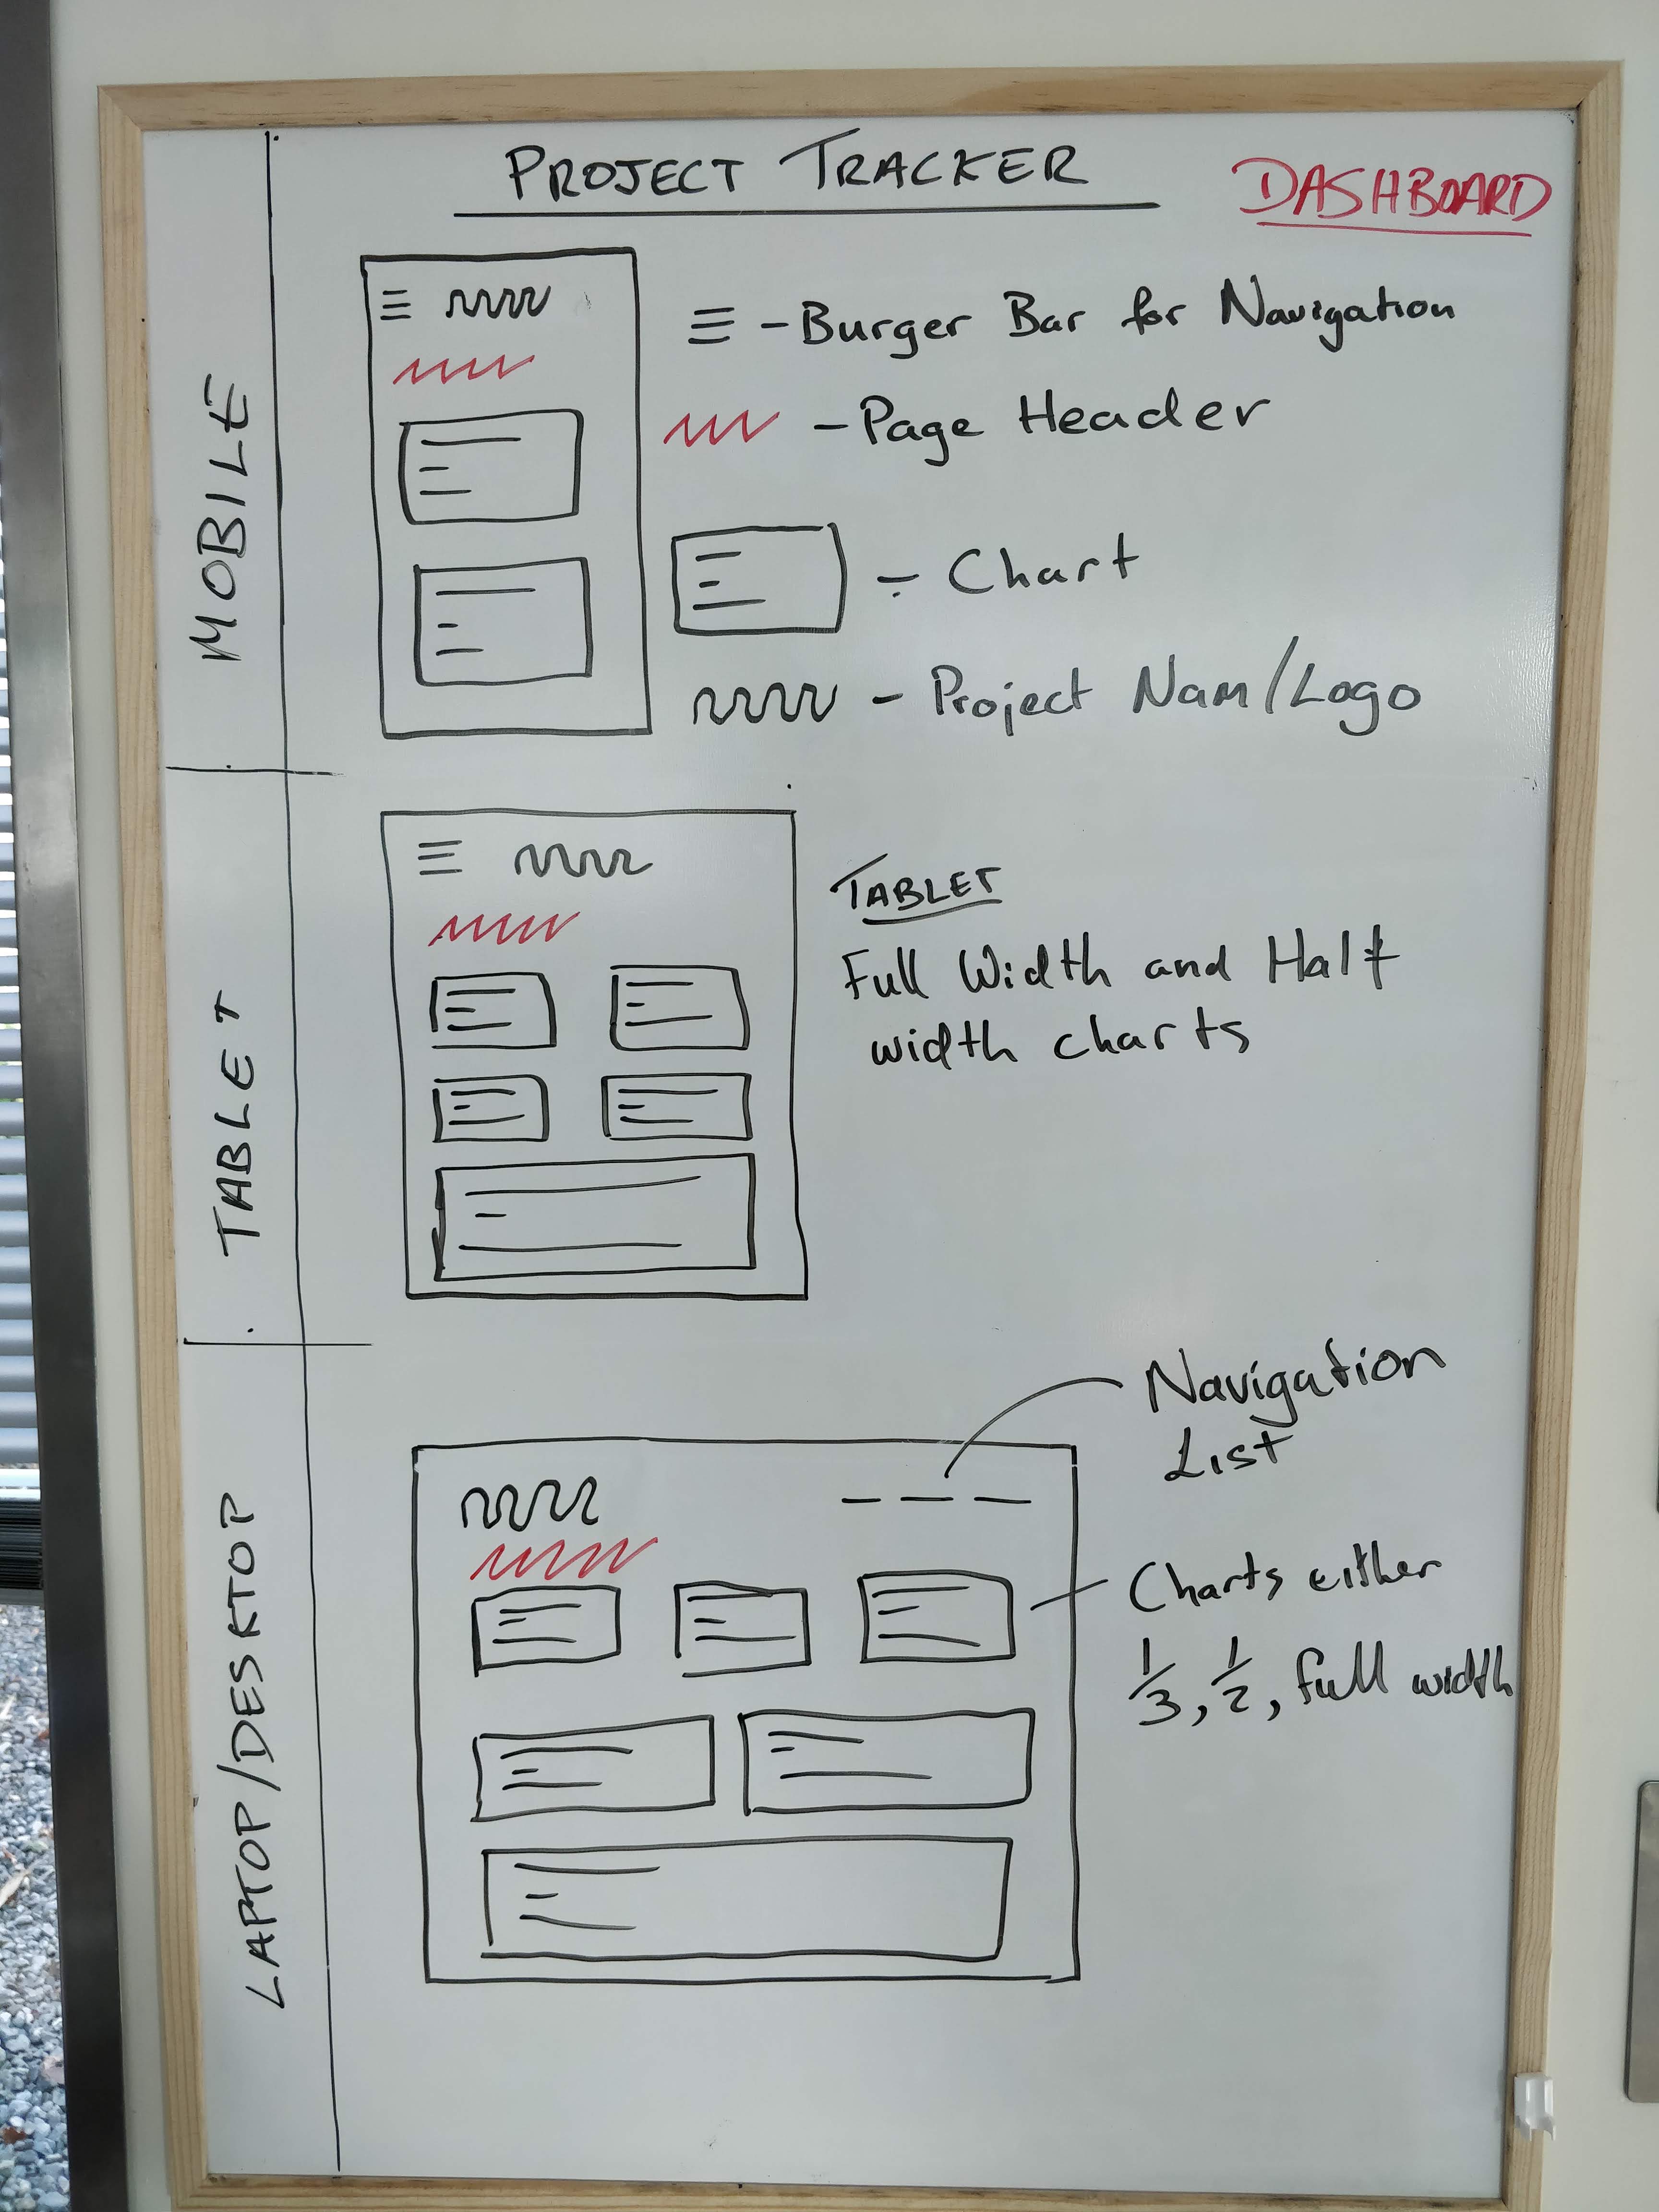 PROJECT TRACKER
DASHBOARD
MOBILE
- Burger Bar for Navigation
- Page Header
- Chart
- Project Nam/Logo
TABLET
TABLET
Full Width and Half
width charts
LAPTOP/DESKTOP
Navigation
List
Charts either
1/3, 1/2, full width